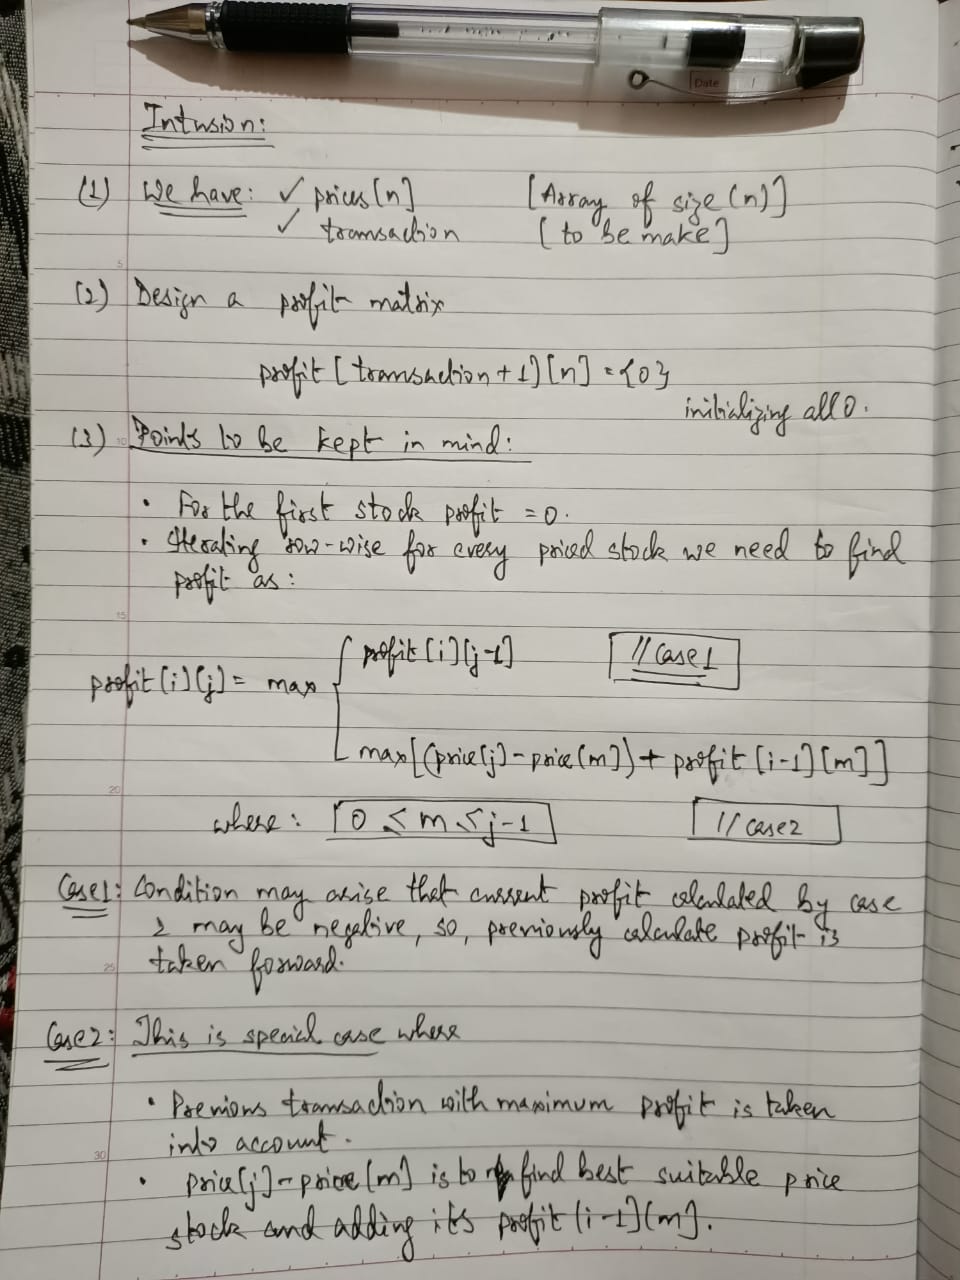 Date
Intusion:
(1) We have: ✓ prices[n] [Array of size (n)]
✓ transaction [to be make]
5
(2) Design a profit matrix
profit [transaction + 1][n] = {0}
initializing all 0.
(3) 10 Points to be kept in mind:
• For the first stock profit = 0.
• Iterating row-wise for every priced stock we need to find
profit as:
15
profit[i][j] = max { profit[i][j-1] //case1
max[(price[j] - price[m]) + profit[i-1][m]]
20
where: 0 ≤ m ≤ j-1 //case2
Case1: Condition may arise that current profit calculated by case
2 may be negative, so, previously calculate profit is
25 taken forward.
Case2: This is special case where
• Previous transaction with maximum profit is taken
into account.
30
• price[j] - price[m] is to find best suitable price
stock and adding its profit[i-1][m].